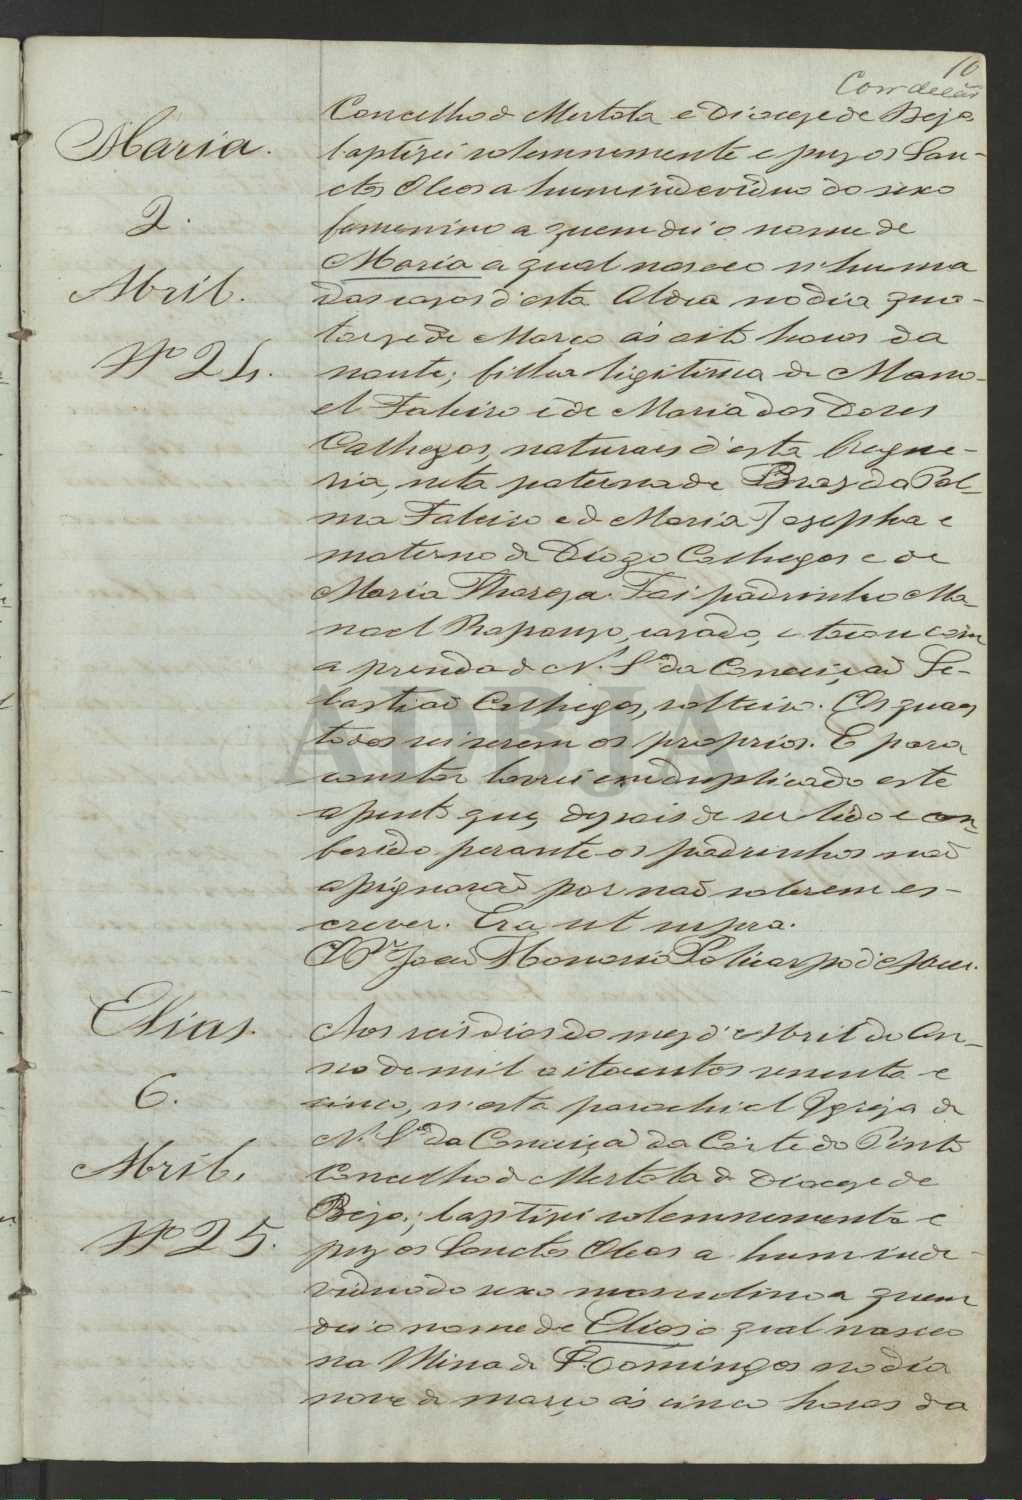 10
Maria.
2.
Abril.
Nº 24.
Concelho de Mertola e Diocese de Beja
baptizei solemnemente e puz os San-
ctos Oleos a hum individuo do sexo
femenino a quem dei o nome de
Maria a qual nasceo n'huma
das casas d'esta Aldea no dia qua-
torze de Março ás oito horas da
noute; filha legitima de Mano-
el Faleiro e de Maria das Dores
Calhegas, naturaes d'esta fregue-
sia, neta paterna de Braz da Pal-
ma Faleiro e de Maria Josepha e
materna de Diogo Calhegas e de
Maria Thereza. Foi padrinho Ma-
noel Raposo, casado, e tocou com
a prenda de N. Sª da Conceição Se-
bastião Calhegas, solteiro. Os quaes
todos sei serem os proprios. E para
constar lavrei em duplicado este
assento que, depois de ser lido e con-
ferido perante os padrinhos não
assignarão por não saberem es-
crever. Era ut supra.
O Pʳ João
Elias.
6.
Abril.
Nº 25.
Aos seis dias do mez d'Abril do An-
no de mil oitocentos sesenta e
cinco, n'esta parochial Igreja de
N. Sª da Conceição da Côrte do Pinto
Concelho de Mertola e Diocese de
Beja; baptizei solemnemente e
puz os Sanctos Oleos a hum inde-
viduo do sexo masculino a quem
dei o nome de Elias o qual nasceo
na Mina de S. Domingos no dia
nove de março ás cinco horas da
ADBJA